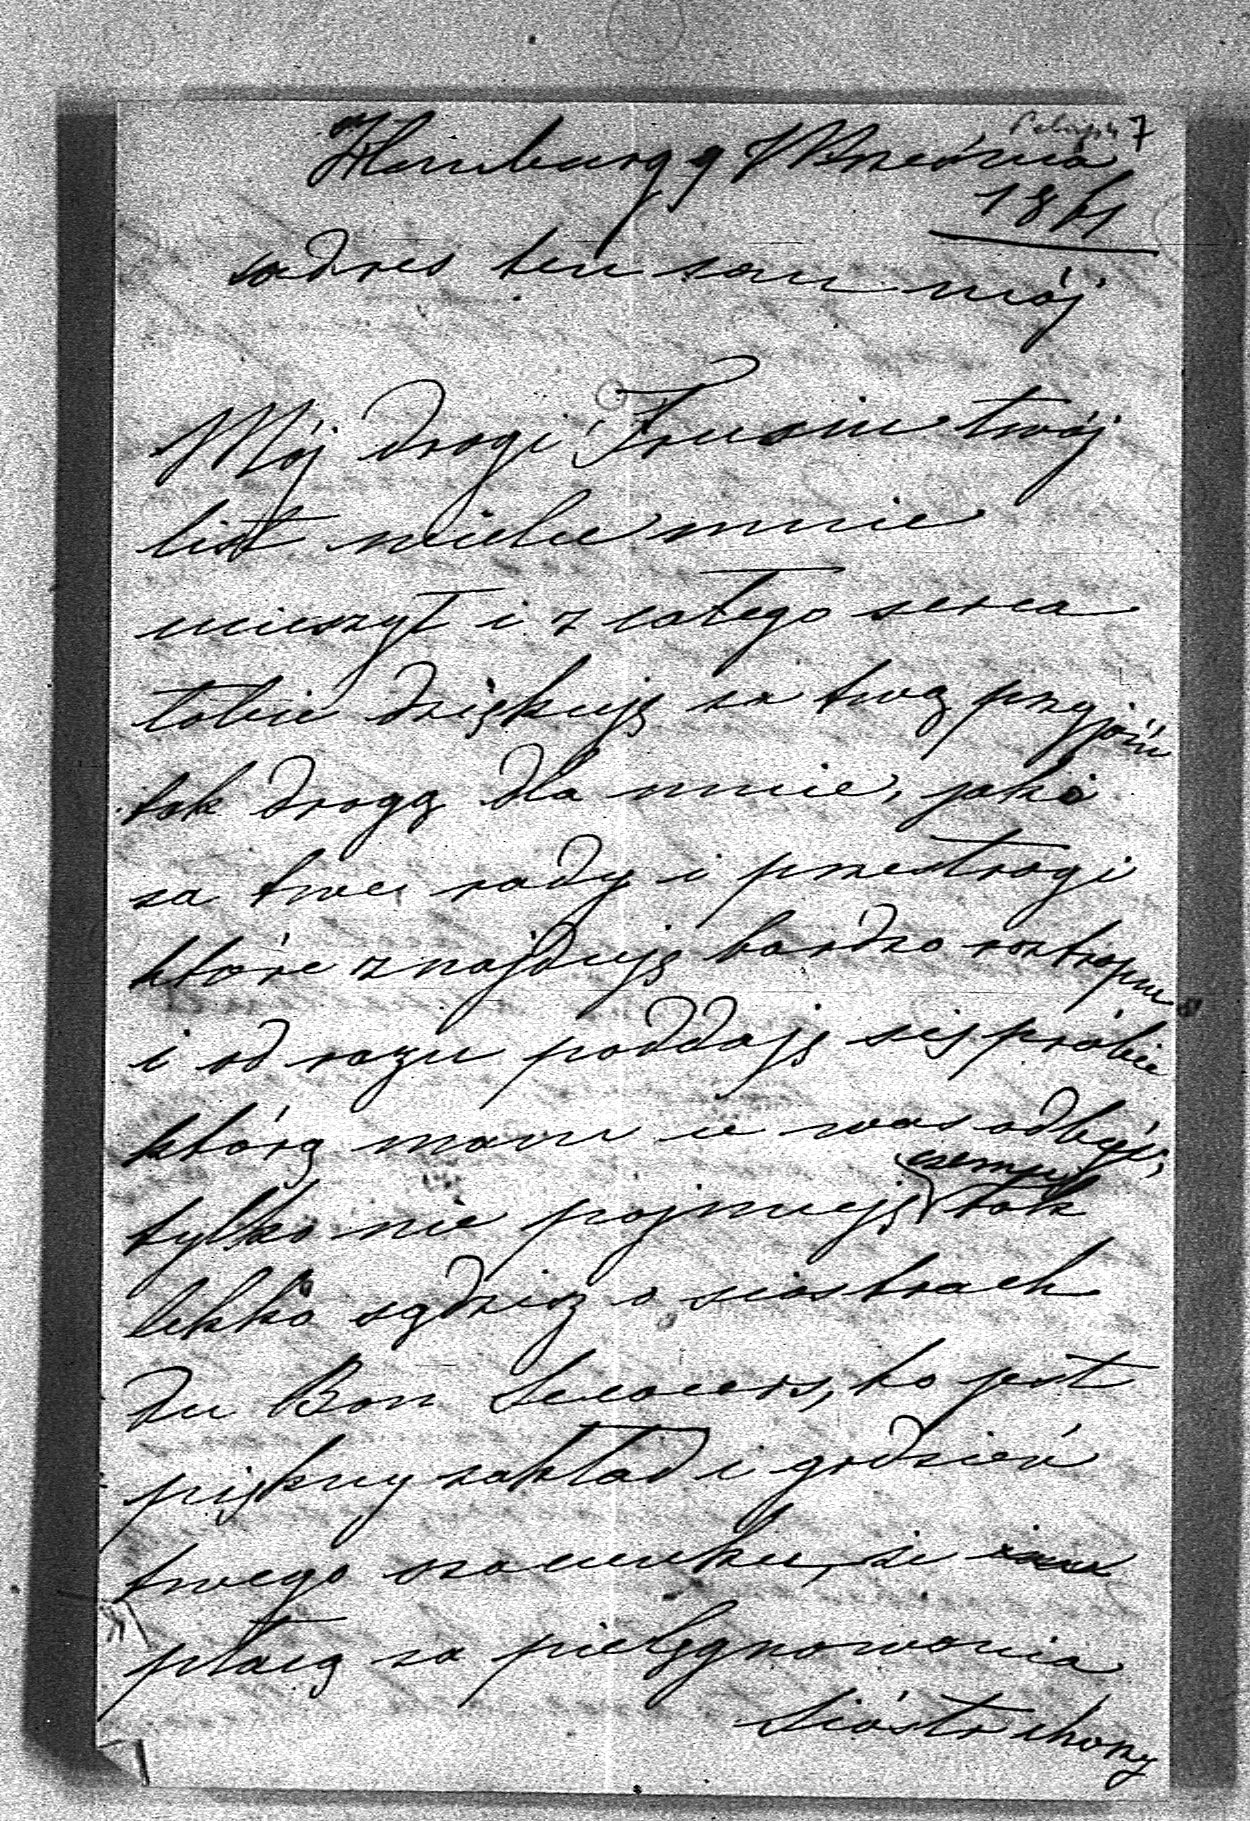 7
Homburg 9 Września
1871
adres ten sam mój
Mój drogi twój
list wiele mnie
ucieszył i z całego serca
tobie dziękuję za twą przyjaźń
tak drogą dla mnie, jako
za twe rady i przestrogi
które znajduję bardzo roztropne
i od razu poddaję się próbie
którą mam u was odbyć,
tylko nie pojmuję czemu tak
lekko sądzisz o siostrach
du Bon Secours, to jest
piękny zakład i godzien
twego szacunku, że
płacą za pielęgnowania
Sióstr chory